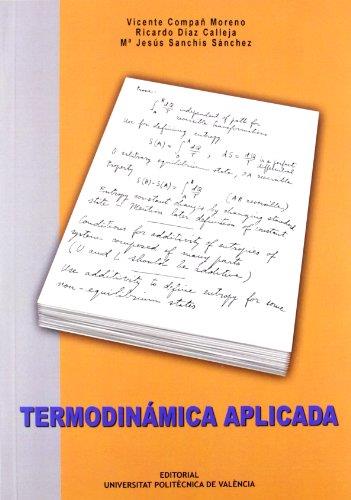 Vicente Compañ Moreno
Ricardo Díaz Calleja
Mª Jesús Sanchis Sánchez
Prove:
∫ dQ/T independent of path for
reversible transformations
Use for defining entropy:
S(A) = ∫ dQ/T ; dS = dQ/T is a perfect
differential
O arbitrary equilibrium state, A reversible
Property
S(B)-S(A) = ∫ dQ/T (AB reversible)
Entropy constant changes by changing standard
state - Mention later definition of constant
Conditions for additivity of entropies of
systems composed of many parts
(U and L should be additive)
Use additivity to define entropy for some
non-equilibrium states
TERMODINÁMICA APLICADA
EDITORIAL
UNIVERSITAT POLITÈCNICA DE VALÈNCIA